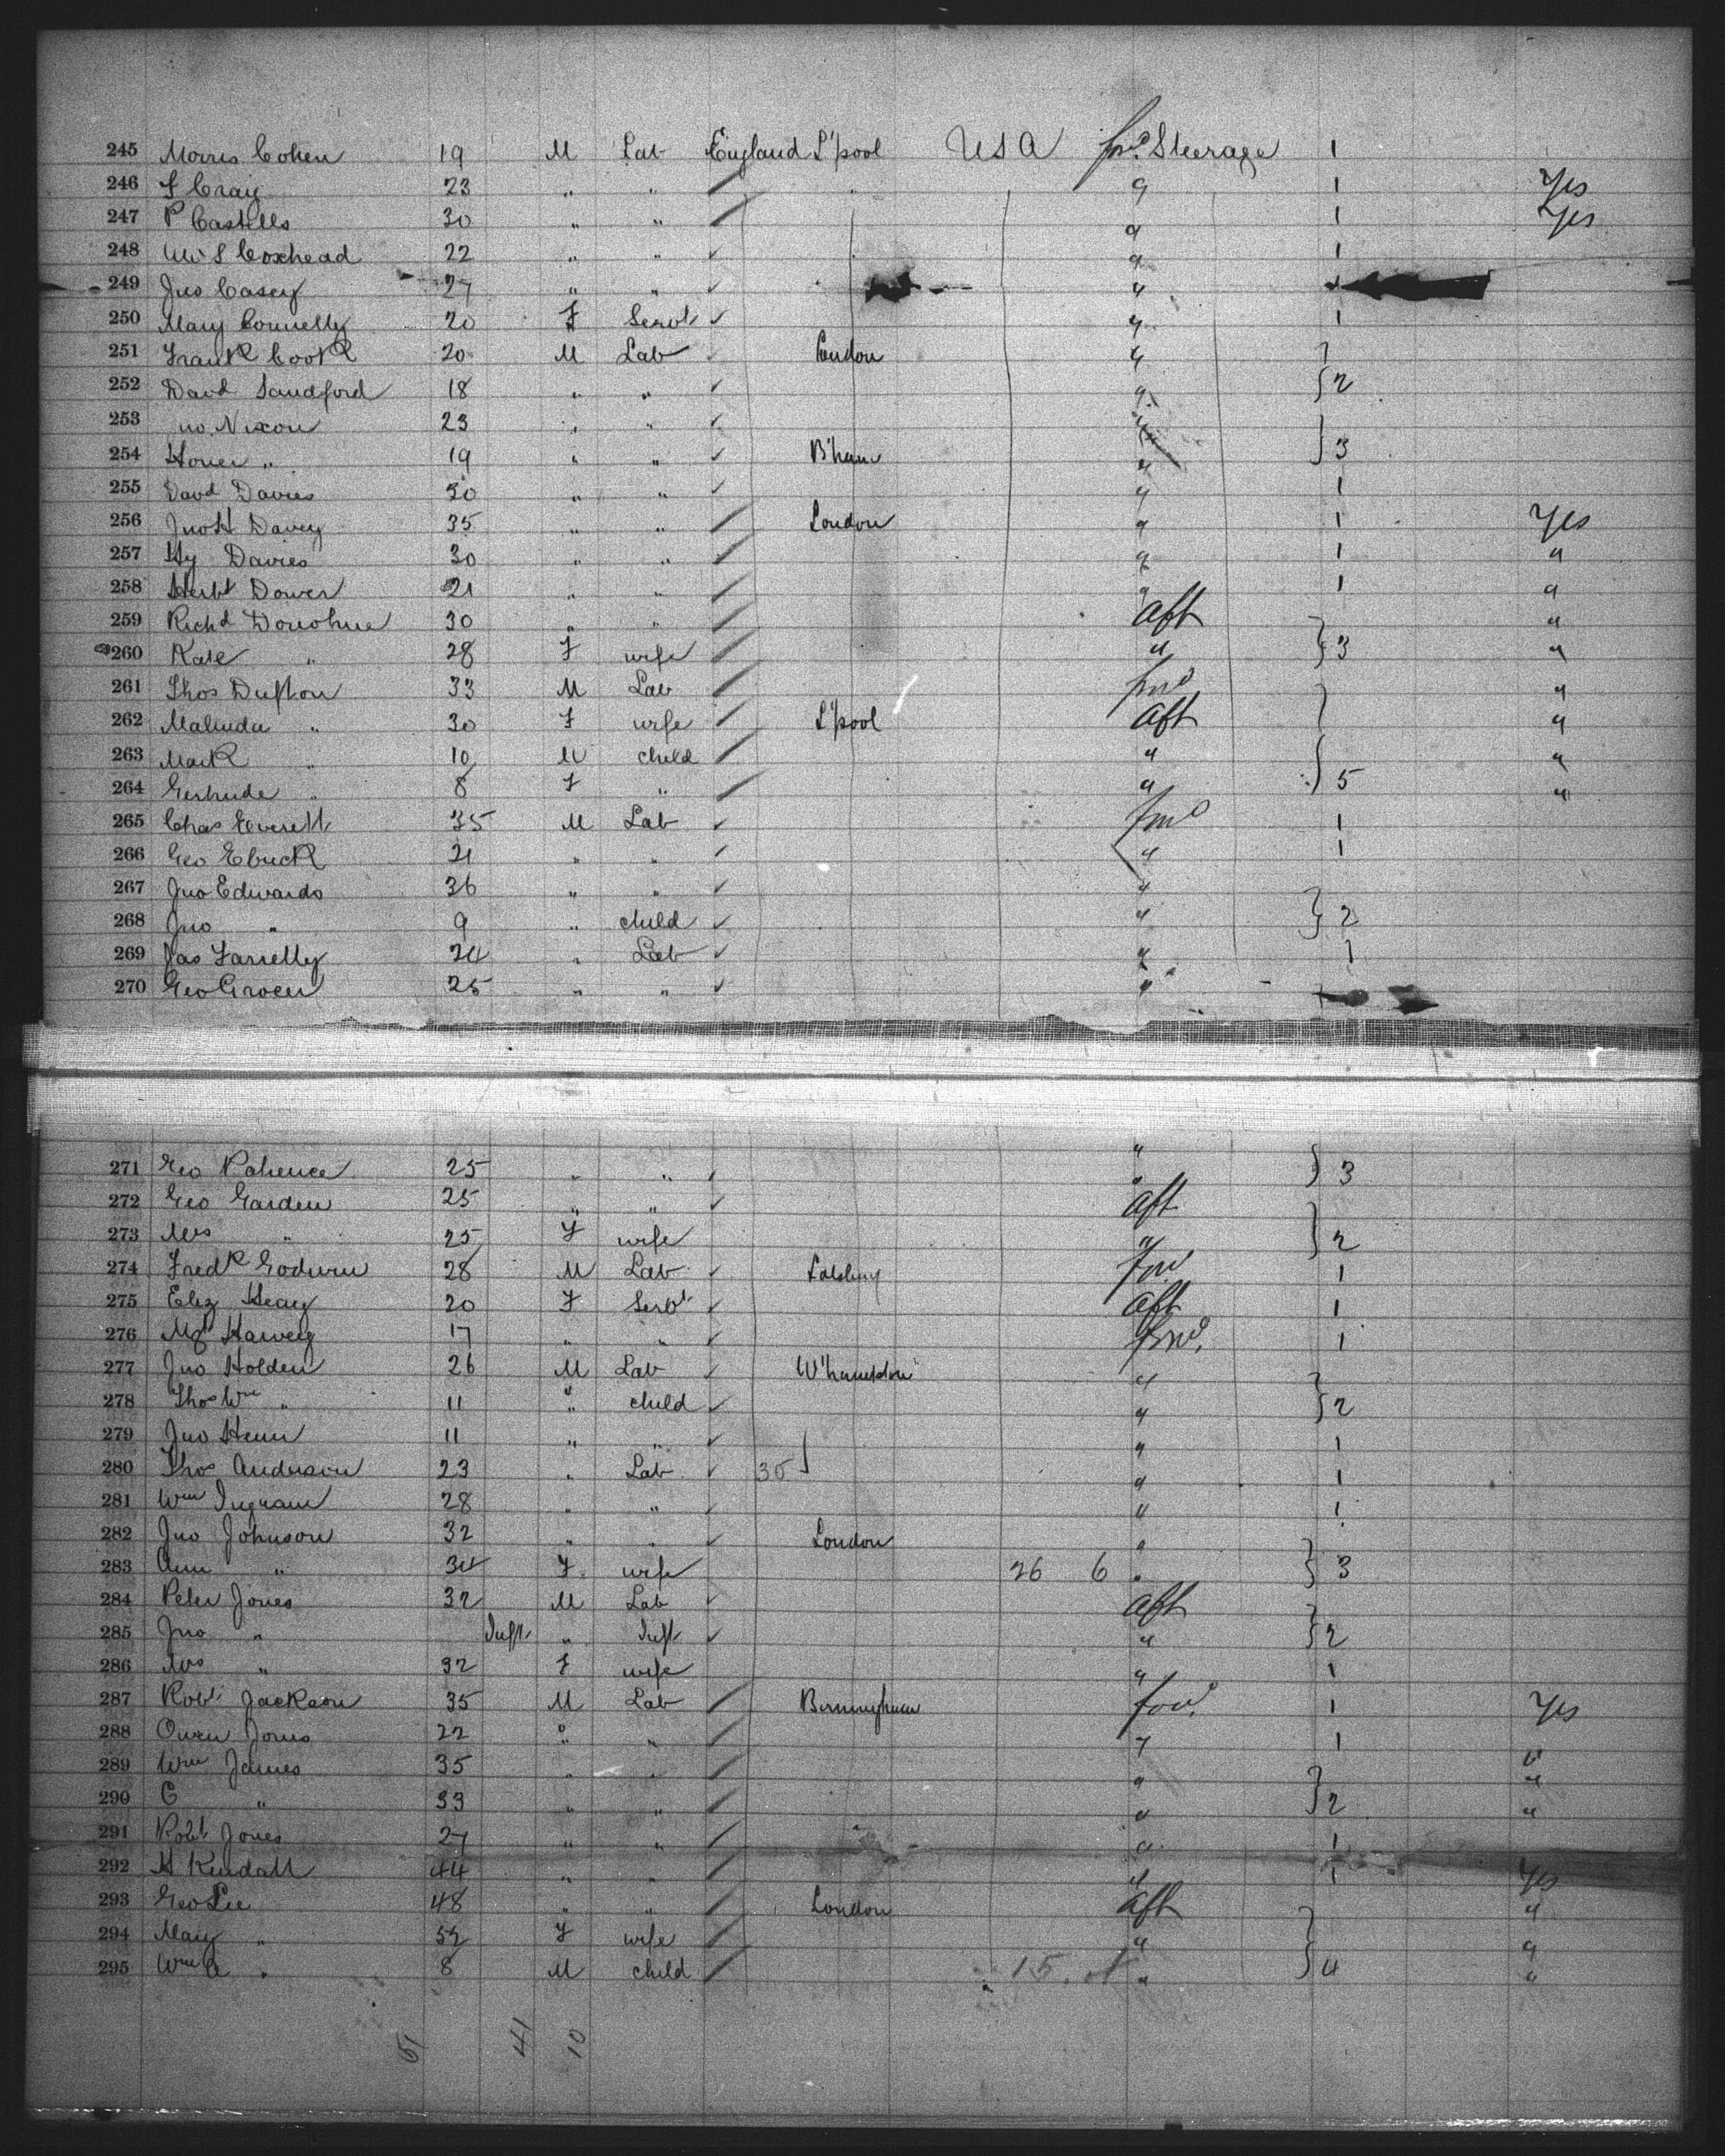 245 Morris Cohen 19 M Lab England L'pool USA fwd Steerage 1
246 Craig 23 " " " " 1 Yes
247 P Castells 30 " " " 1 Yes
248 Coxhead 22 " " " 1
249 Jno Casey 27 " " "
250 Mary Connelly 20 F Servt " 1
251 Frank Cook 20 M Lab London "
252 David Sandford 18 " " " 2
253 Nixon 23 " " "
254 " 19 " " B'ham " 3
255 David Davies 30 " " " 1
256 Jno H Davey 35 " " London " 1 Yes
257 Hy Davies 30 " " " 1 "
258 Herbt Dower 21 " " " 1 "
259 Richd Donohue 30 " " aft "
260 Kate " 28 F wife " 3 "
261 Thos Dufton 33 M Lab fwd "
262 Malinda " 30 F wife L'pool aft "
263 Mark " 10 M child " "
264 Gertrude " 8 F " " 5 "
265 Chas Everett 35 M Lab fwd 1
266 Geo 21 " " " 1
267 Jno Edwards 36 " " "
268 Jno " 9 " child " 2
269 Jas Farrelly 24 " Lab " 1
270 Geo 25 " " "
271 Geo Patience 25 " " " 3
272 Geo Garden 25 " " aft
273 Mrs " 25 F wife " 2
274 Fredk Godwin 28 M Lab fwd 1
275 Eliz 20 F Servt aft 1
276 Harvey 17 " " fwd. 1
277 Jno Holden 26 M Lab W'hampton "
278 Thos Wm " 11 " child " 2
279 Jno 11 " " " 1
280 Thos Anderson 23 " Lab 35 " 1
281 Wm Ingram 28 " " " 1
282 Jno Johnson 32 " " London "
283 Ann " 34 F. wife 26 6 " 3
284 Peter Jones 32 M Lab aft
285 Jno " Inft " Inft " 2
286 Mrs " 32 F wife " 1
287 Robt Jackson 35 M Lab Birmingham fwd. 1 Yes
288 Owen Jones 22 " " " 1 "
289 Wm James 35 " " " "
290 C " 33 " " " 2 "
291 Robt Jones 27 " " " 1
292 H Kendall 44 " " " 1 Yes
293 Geo Lee 48 " " London aft "
294 Mary " 52 F wife " "
295 Wm A " 8 M child 15. " 4 "
41 10